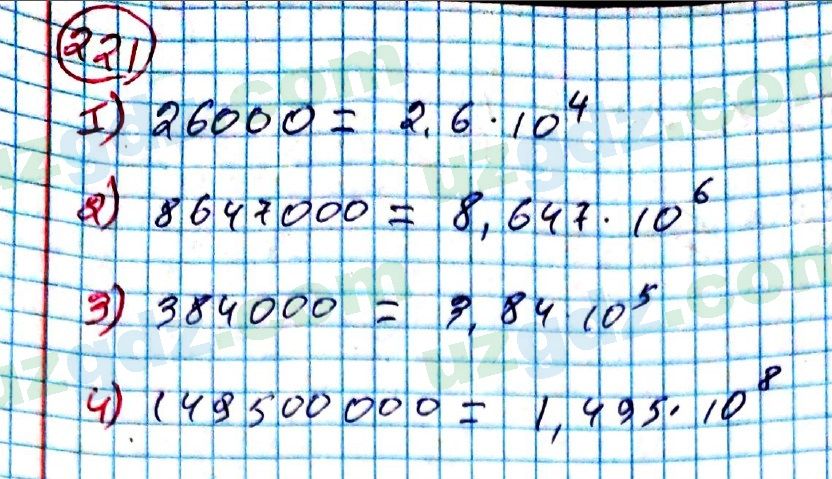 221
1) 26000 = 2,6 · 10⁴
2) 8647000 = 8,647 · 10⁶
3) 384000 = 3,84 · 10⁵
4) 149500000 = 1,495 · 10⁸
uzgdz.com